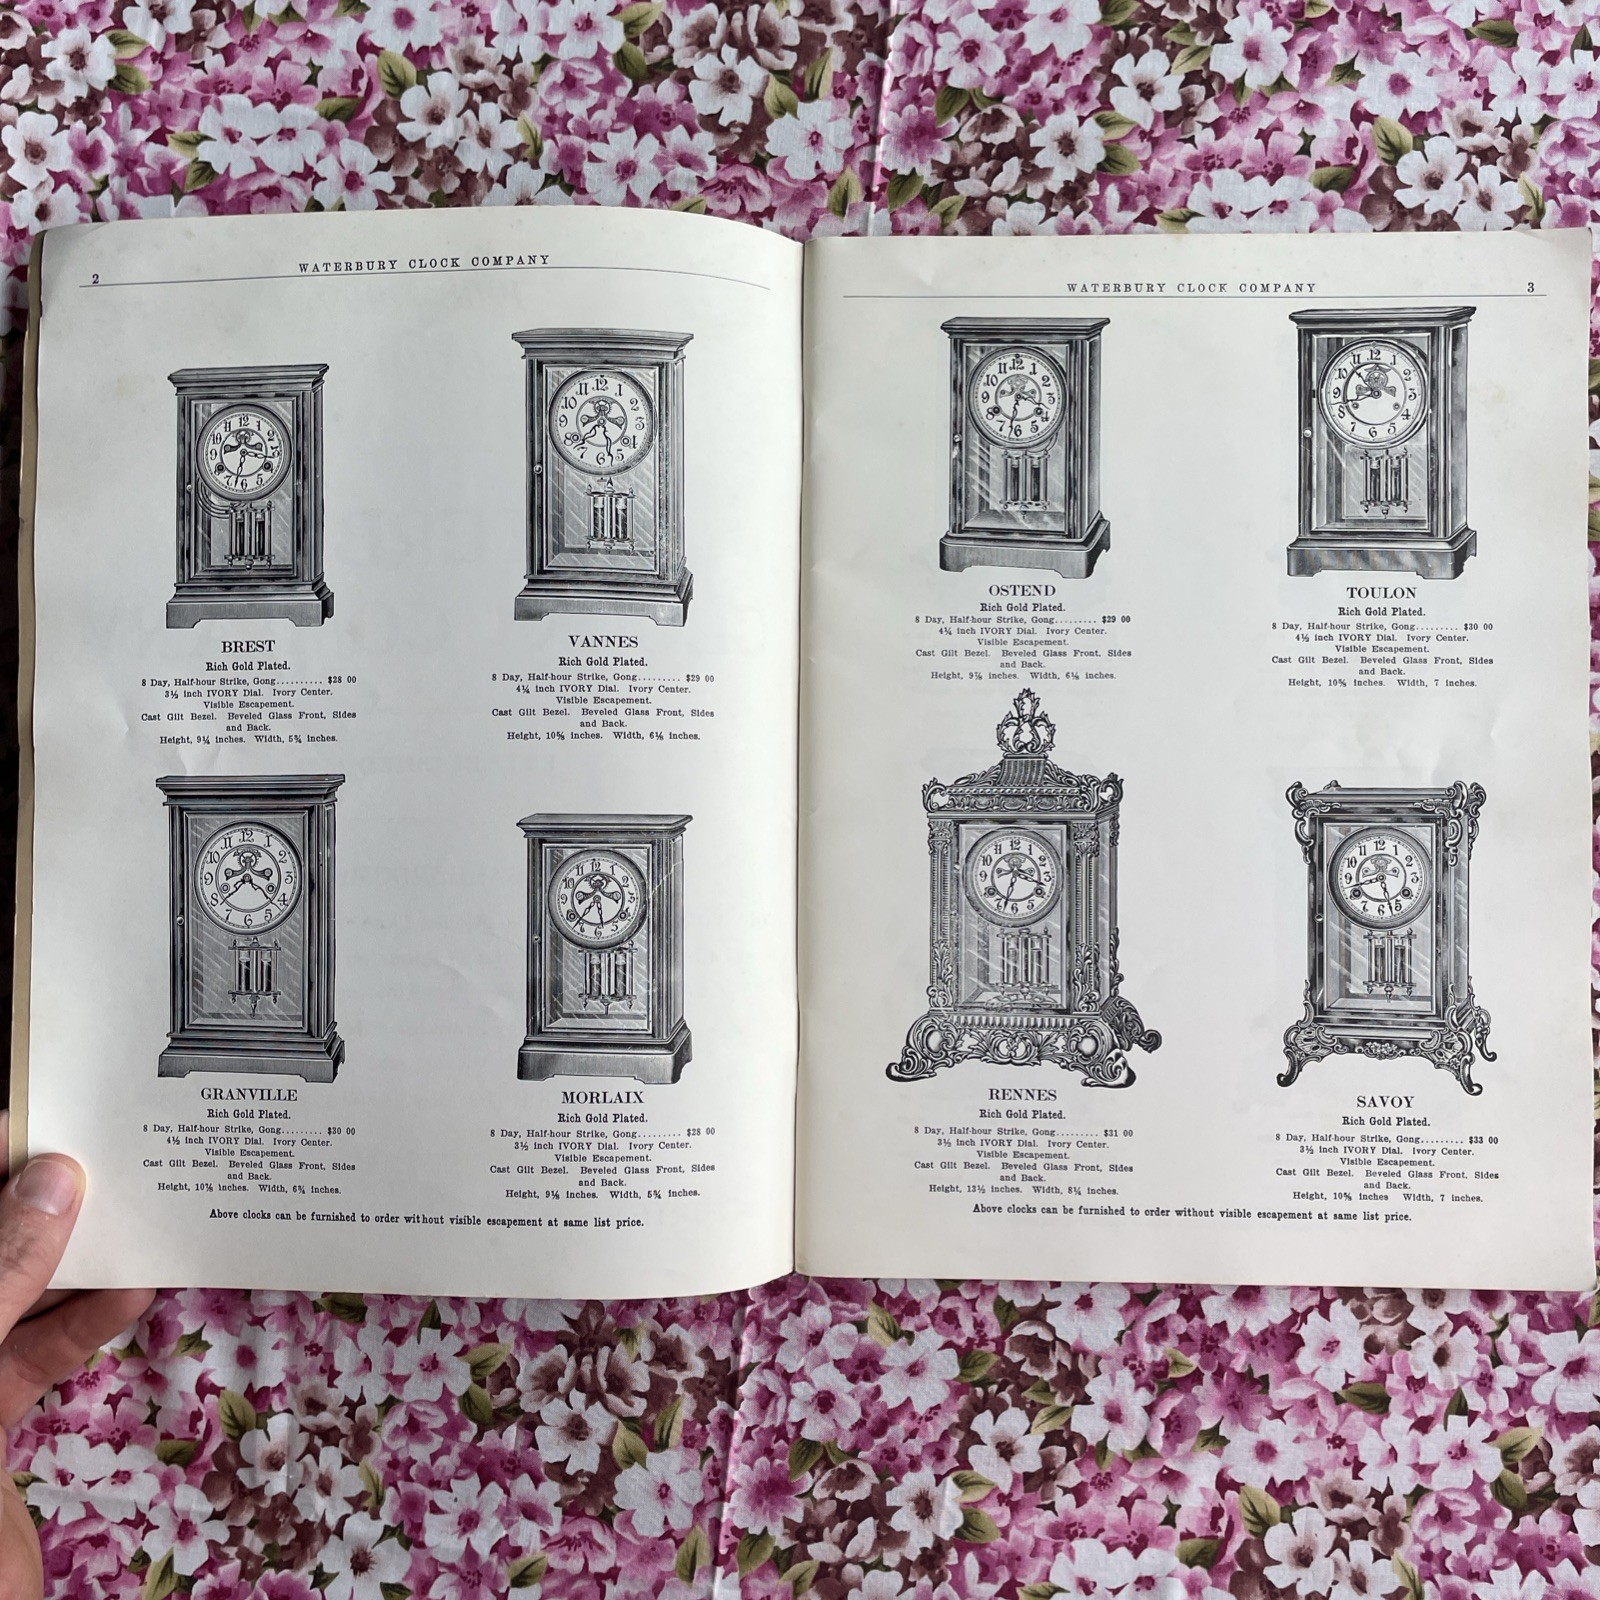 2
WATERBURY CLOCK COMPANY
BREST
Rich Gold Plated.
8 Day, Half-hour Strike, Gong.......... $28 00
3½ inch IVORY Dial. Ivory Center.
Visible Escapement.
Cast Gilt Bezel. Beveled Glass Front, Sides
and Back.
Height, 9¼ inches. Width, 5¾ inches.
VANNES
Rich Gold Plated.
8 Day, Half-hour Strike, Gong......... $29 00
4¼ inch IVORY Dial. Ivory Center.
Visible Escapement.
Cast Gilt Bezel. Beveled Glass Front, Sides
and Back.
Height, 10⅝ inches. Width, 6⅛ inches.
GRANVILLE
Rich Gold Plated.
8 Day, Half-hour Strike, Gong......... $30 00
4½ inch IVORY Dial. Ivory Center.
Visible Escapement.
Cast Gilt Bezel. Beveled Glass Front, Sides
and Back.
Height, 10⅞ inches. Width, 6¾ inches.
MORLAIX
Rich Gold Plated.
8 Day, Half-hour Strike, Gong......... $28 00
3½ inch IVORY Dial. Ivory Center.
Visible Escapement.
Cast Gilt Bezel. Beveled Glass Front, Sides
and Back.
Height, 9⅛ inches. Width, 5¾ inches.
Above clocks can be furnished to order without visible escapement at same list price.
WATERBURY CLOCK COMPANY
3
OSTEND
Rich Gold Plated.
8 Day, Half-hour Strike, Gong......... $29 00
4¼ inch IVORY Dial. Ivory Center.
Visible Escapement.
Cast Gilt Bezel. Beveled Glass Front, Sides
and Back.
Height, 9⅞ inches. Width, 6⅛ inches.
TOULON
Rich Gold Plated.
8 Day, Half-hour Strike, Gong......... $30 00
4½ inch IVORY Dial. Ivory Center.
Visible Escapement.
Cast Gilt Bezel. Beveled Glass Front, Sides
and Back.
Height, 10⅝ inches. Width, 7 inches.
RENNES
Rich Gold Plated.
8 Day, Half-hour Strike, Gong......... $31 00
3½ inch IVORY Dial. Ivory Center.
Visible Escapement.
Cast Gilt Bezel. Beveled Glass Front, Sides
and Back.
Height, 13½ inches. Width, 8¼ inches.
SAVOY
Rich Gold Plated.
8 Day, Half-hour Strike, Gong......... $33 00
3½ inch IVORY Dial. Ivory Center.
Visible Escapement.
Cast Gilt Bezel. Beveled Glass Front, Sides
and Back.
Height, 10⅝ inches Width, 7 inches.
Above clocks can be furnished to order without visible escapement at same list price.